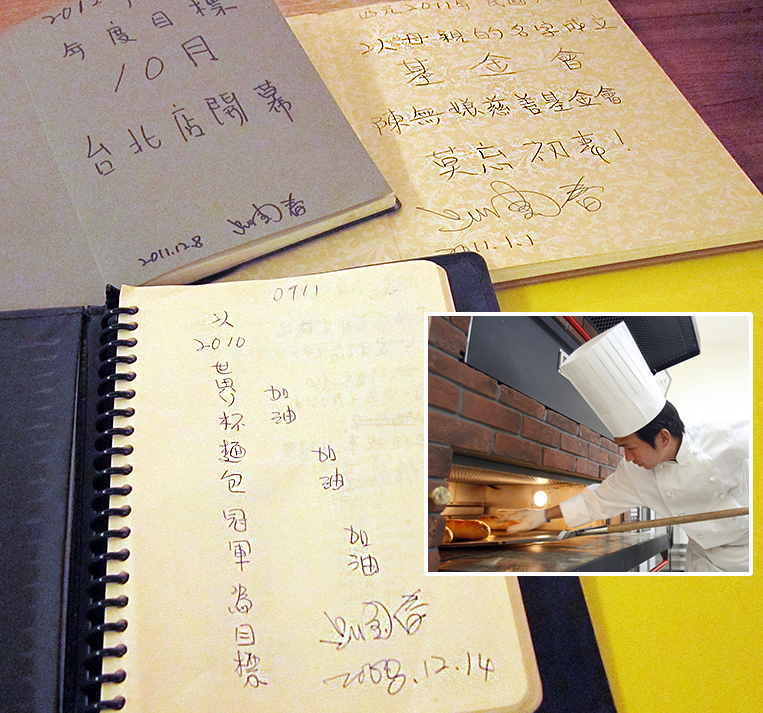 2012年
年度目標
10月
台北店開幕
2011.12.8 吳寶春
西元2011年 民國
以母親的名字成立
基金會
陳無嫌慈善基金會
莫忘初衷!
吳寶春
2011.1.1
0911
以2010世界杯麵包冠軍為目標
加油
加油
加油
吳寶春
2008.12.14